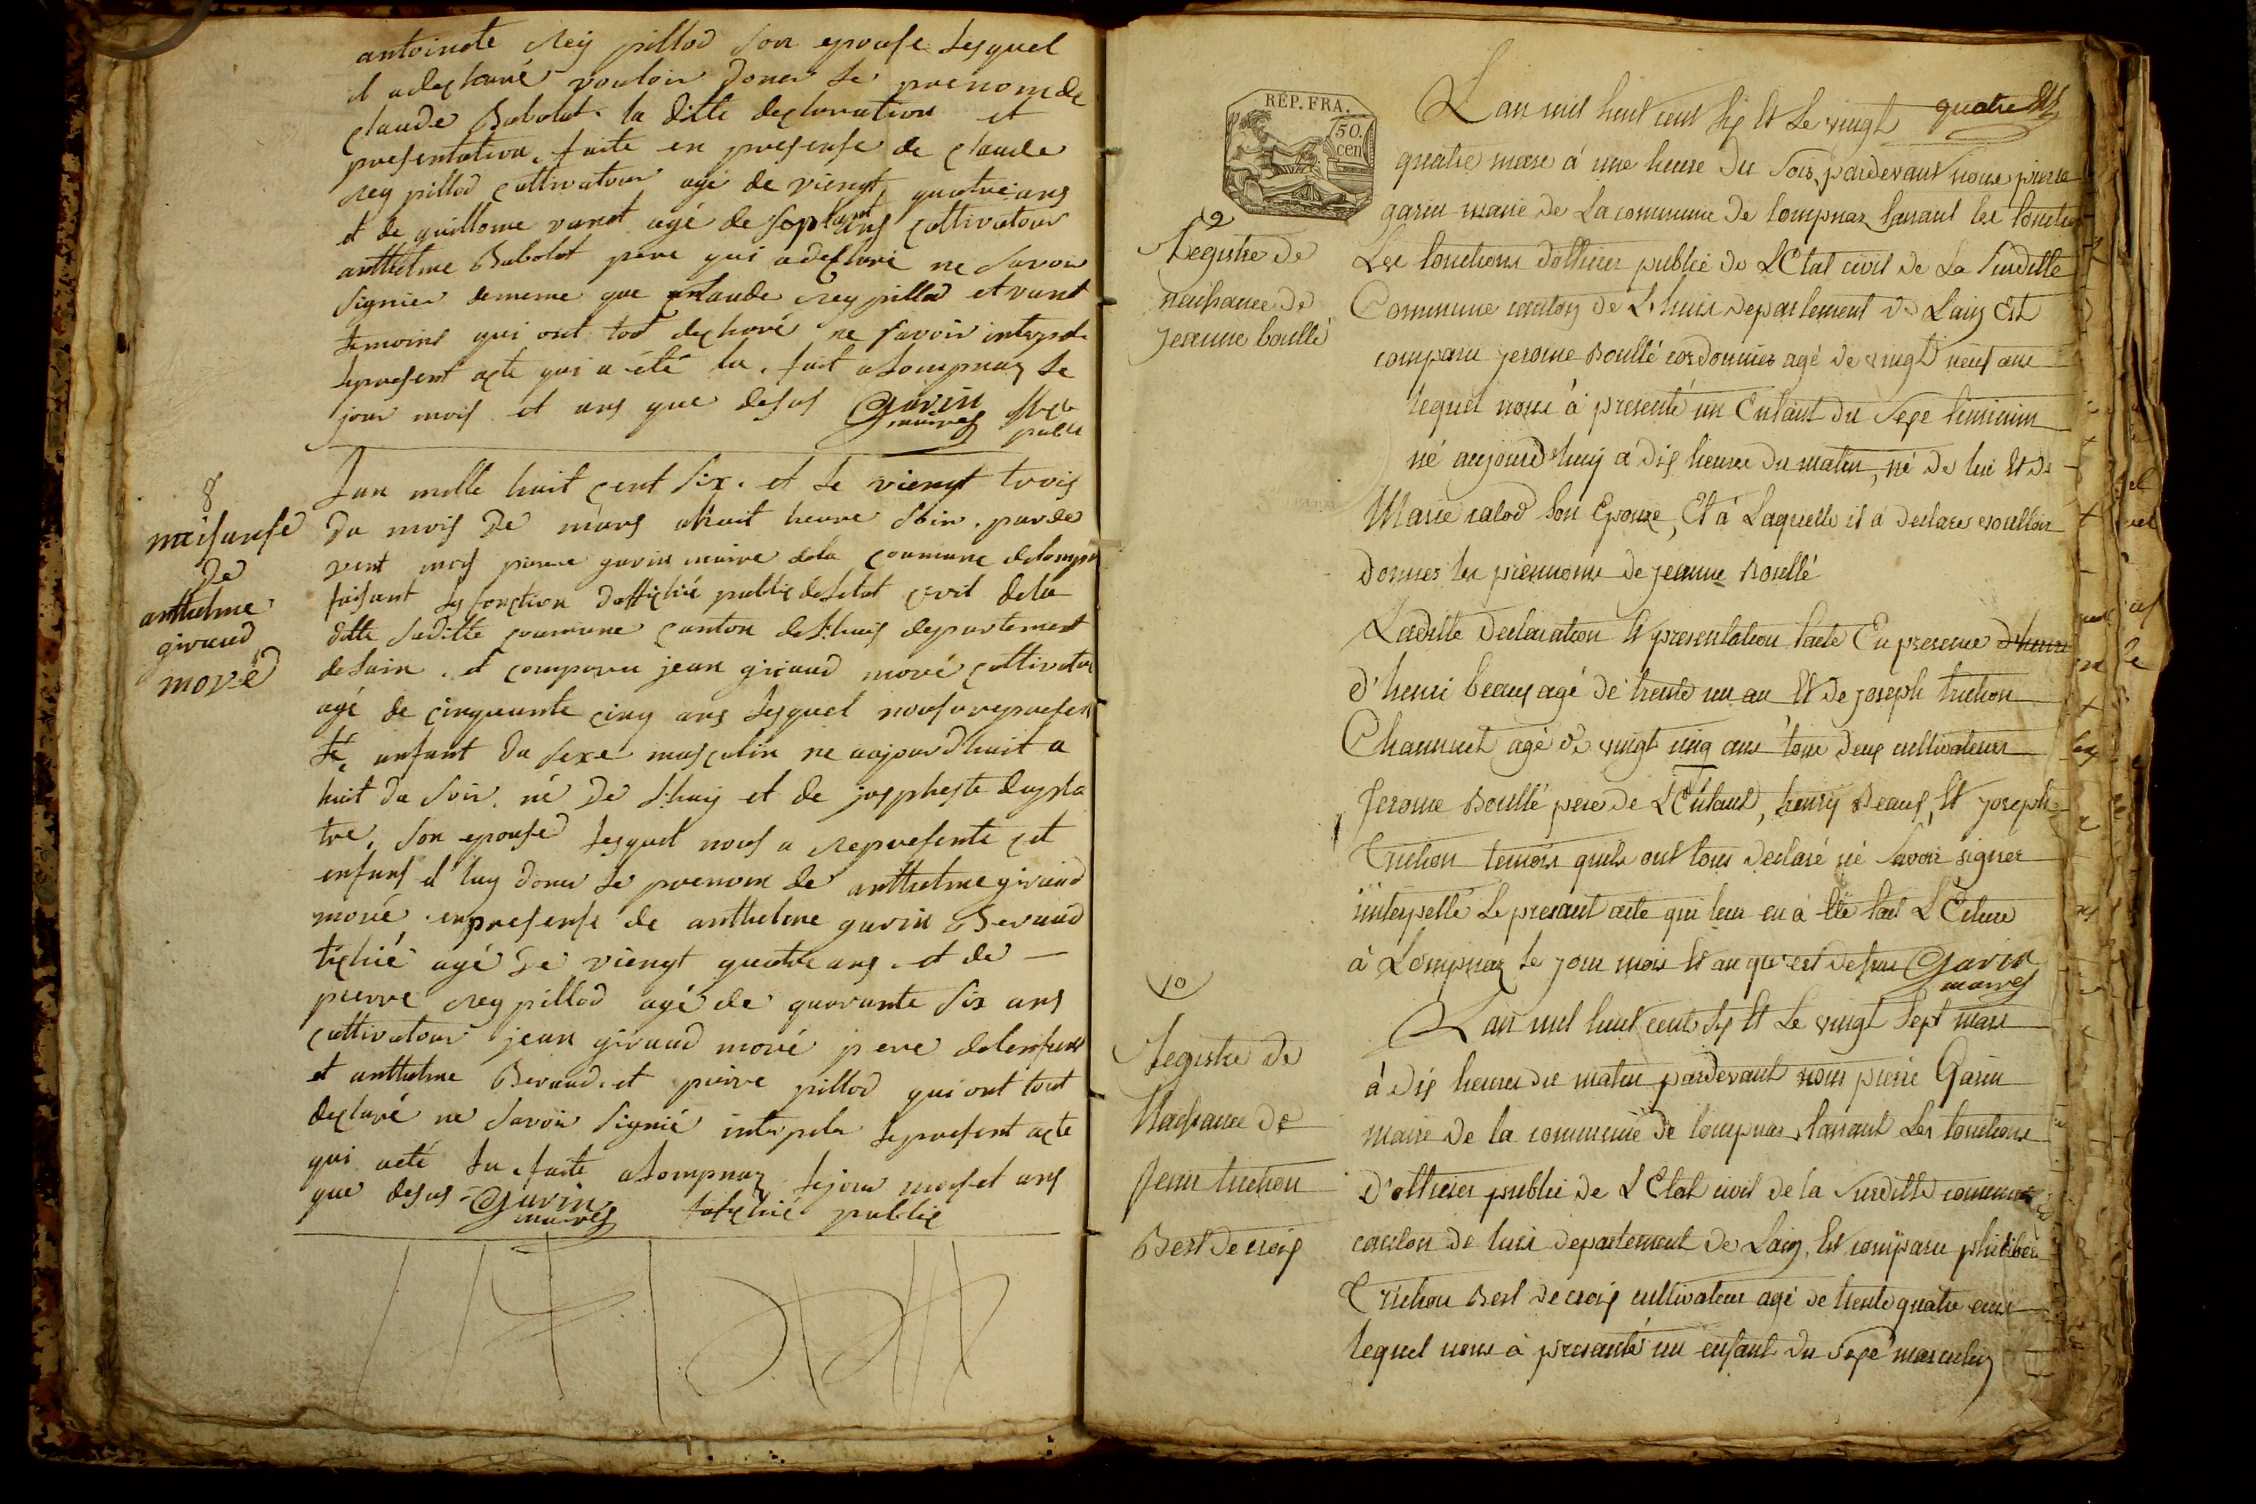 antoinete rey pillod son epouse lesquel
il a declaré vouloir doner le prenom de
claude Babolat la ditte declaration et
presentation faite en presense de claude
rey pillod cultivatour agé de viengt quatre ans
et de guillome agé de septant ans cultivatour
anthelme Babolat pere qui a declaré ne savoir
signier dememe que claude rey pillod et
temoins qui ont tout declaré ne savoir interpele
lepresent acte qui a été lu. fait a Lompnaz le
jour mois et ans que desus Garin
maire
public
8
naisanse
de
anthelme
giraud
moré
Lan mille huit cent six. et le viengt trois
du mois de mars a huit heure soir. parde
vent nous pierre garin maire dela coumune delompn
faisant les fonction dofficié public deletat civil dela
ditte suditte coumune canton delhuis departement
delain. et comparu jean giraud moré cultivatou
agé de cinquante cinq ans lesquel nous a represen
té enfant du sexe masculin ne aujourdhuit a
huit du soir. né de lhuy et de josepheste dupla
tre. son epouse lesquel nous a represente cet
enfans et luy doner le prenom de anthelme giraud
moré en presense de anthelme garin Beraud
agé de viengt quatre ans. et de
pierre rey pillod agé de quarante six ans
cultivatour jean giraud moré pere delenfans
et anthelme Beraud. et pierre pillod qui ont tout
declaré ne savoir signié interpele lepresent acte
qui a eté lu. faite a Lompnaz lejour mois et ans
que desus Garin lofficié public
maire
REP. FRA.
50.
cen
9
Registre de
naissance de
jeanne boullé
L'an mil huit cent six et le vingt quatre
quatre mars à une heure du soir, pardevant nous pierre
garin maire de la commune de lompnaz faisant les fonction
Les fonctions d'officier public de L'Etat civil de La susditte
Commune canton de Lhuis departement de L'ain Est
comparu jerome Boullé cordonnier agé de vingt neuf ans
lequel nous à presenté un Enfant du sexe feminin
né aujourd'huy a dix heures du matin, né de lui et de
Marie calod son Epouze, Et à Laquelle il a declaré voulloir
donner les prennoms de jeanne Boullé
Laditte Declaration et presentation faite En presence d'henri
d'henri beaux agé de trente un an Et de joseph truchon
Channuet agé de vingt cinq ans tous deux cultivateurs
Jerome Boullé pere de L'Enfant, henry Beaux, Et joseph
Truchon temoin quils ont tous declaré né savoir signer
interpellé Le present acte qui leur en à été fait L'Ecture
à Lompnaz le jour mois et an qu'est dessus Garin
maire
10
Registre de
Naissance de
Jean truchon
Best de croix
L'an mil huit cent six Et Le vingt sept mars
à dix heures du matin pardevant nous pierre Garin
maire de la commune de lompnas, faisant Les fonctions
D'officier public de L'Etat civil de la susditte commune
canton de luis departement de Lain, Est comparu philibert
Truchon Best de croix cultivateur agé de trente quatre ans
lequel nous à presanté un enfant du sexe masculin